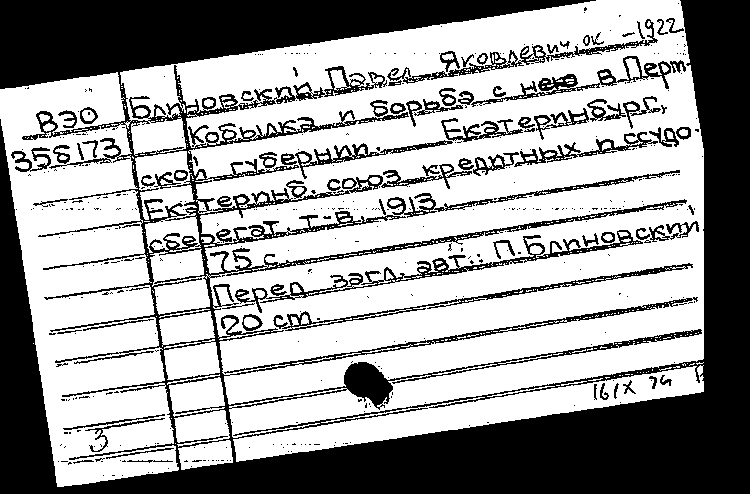 Блиновский, Павел Яковлевич, ок -1922
ВЭО
358173
Кобылка и борьба с нею в Перм-
ской губернии. Екатеринбург,
Екатеринб. союз кредитных и ссудо.
сберегат. т-в. 1913.
75 с.
Перед загл. авт.: П. Блиновский
20 cm.
3